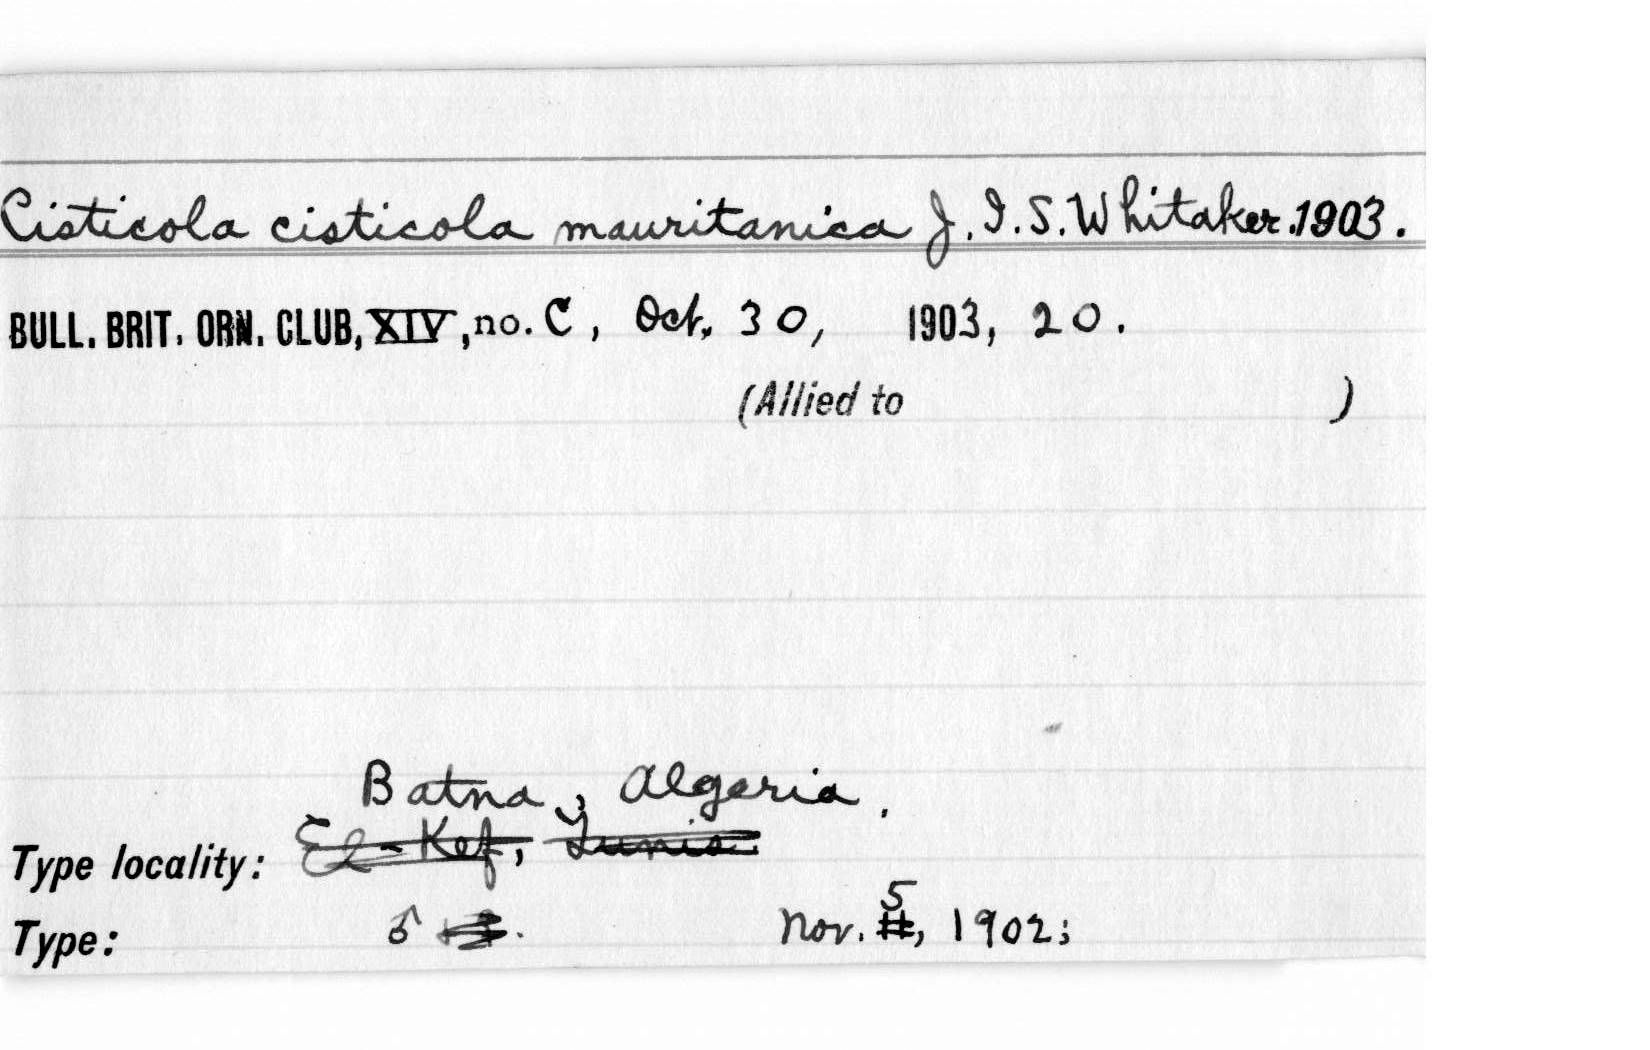 Cisticola cisticola mauritanica J. I. S. Whitaker. 1903.
BULL. BRIT. ORN. CLUB, XIV, no. C, Oct. 30, 1903, 20.
(Allied to )
Batna, Algeria.
Type locality: El-Kef, Tunis.
5
Type: ♂ Nov. , 1902;